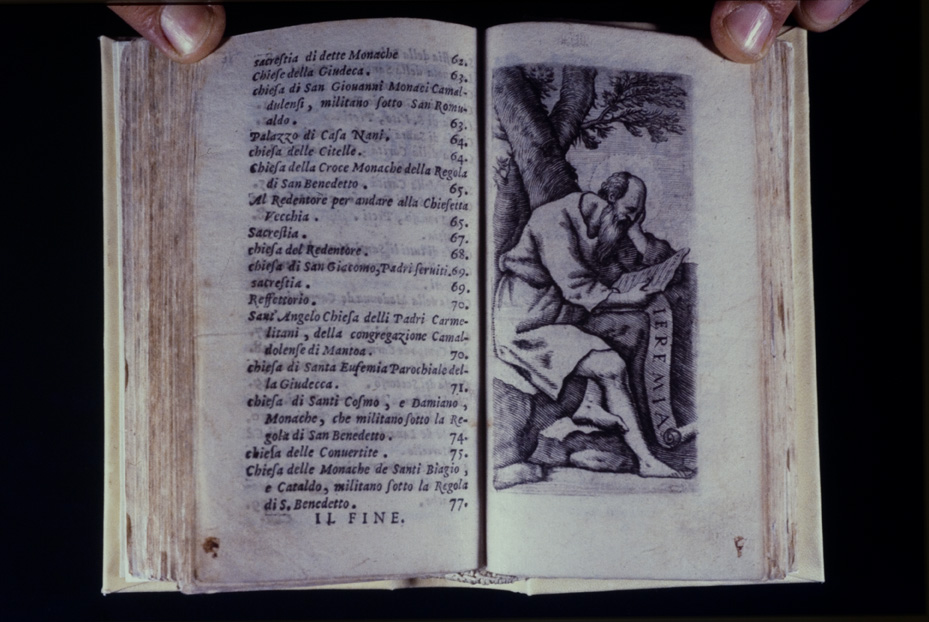 sacreſtia di dette Monache 62.
Chieſe della Giudeca. 63.
chieſa di San Giouanni Monaci Camal-
dulenſi, militano ſotto San Romu-
aldo. 63.
Palazzo di Caſa Nani. 64.
chieſa delle Citelle. 64.
Chieſa della Croce Monache della Regola
di San Benedetto. 65.
Al Redentore per andare alla Chieſetta
Vecchia. 65.
Sacreſtia. 67.
chieſa del Redentore. 68.
chieſa di San Giacomo, Padri ſeruiti. 69.
sacreſtia. 69.
Reffettorio. 70.
Sant'Angelo Chieſa delli Padri Carme-
litani, della congregazione Camal-
dolenſe di Mantoa. 70.
chieſa di Santa Eufemia Parochiale del-
la Giudecca. 71.
chieſa di Santi Coſmo, e Damiano,
Monache, che militano ſotto la Re-
gola di San Benedetto. 74.
chieſa delle Conuertite. 75.
Chieſa delle Monache de Santi Biagio,
e Cataldo, militano ſotto la Regola
di S. Benedetto. 77.
IL FINE.
IEREMIA